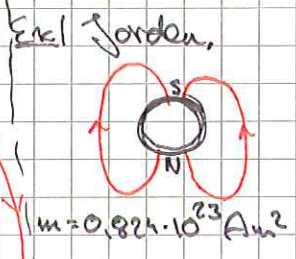 Ex| Jorden.
S
N
m=0,824·10²³ Am²